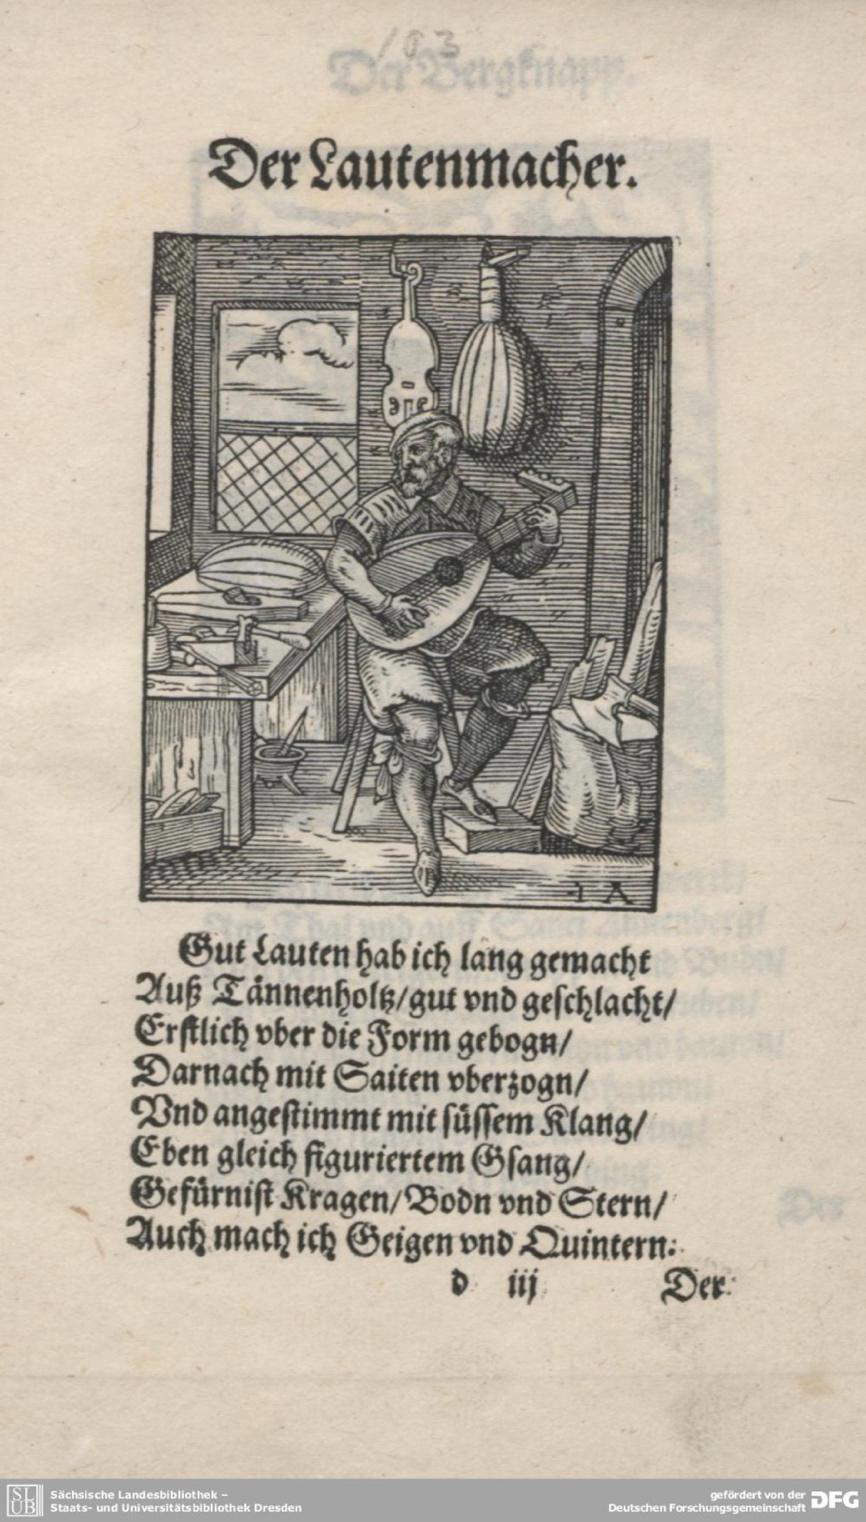 103
Der Lautenmacher.
IA
Gut Lauten hab ich lang gemacht
Auß Tännenholtz/gut vnd geschlacht/
Erstlich vber die Form gebogn/
Darnach mit Saiten vberzogn/
Vnd angestimmt mit süssem Klang/
Eben gleich figuriertem Gsang/
Gefürnist Kragen/Bodn vnd Stern/
Auch mach ich Geigen vnd Quintern.
d iij Der
SLUB Sächsische Landesbibliothek –
Staats- und Universitätsbibliothek Dresden
gefördert von der
Deutschen Forschungsgemeinschaft DFG